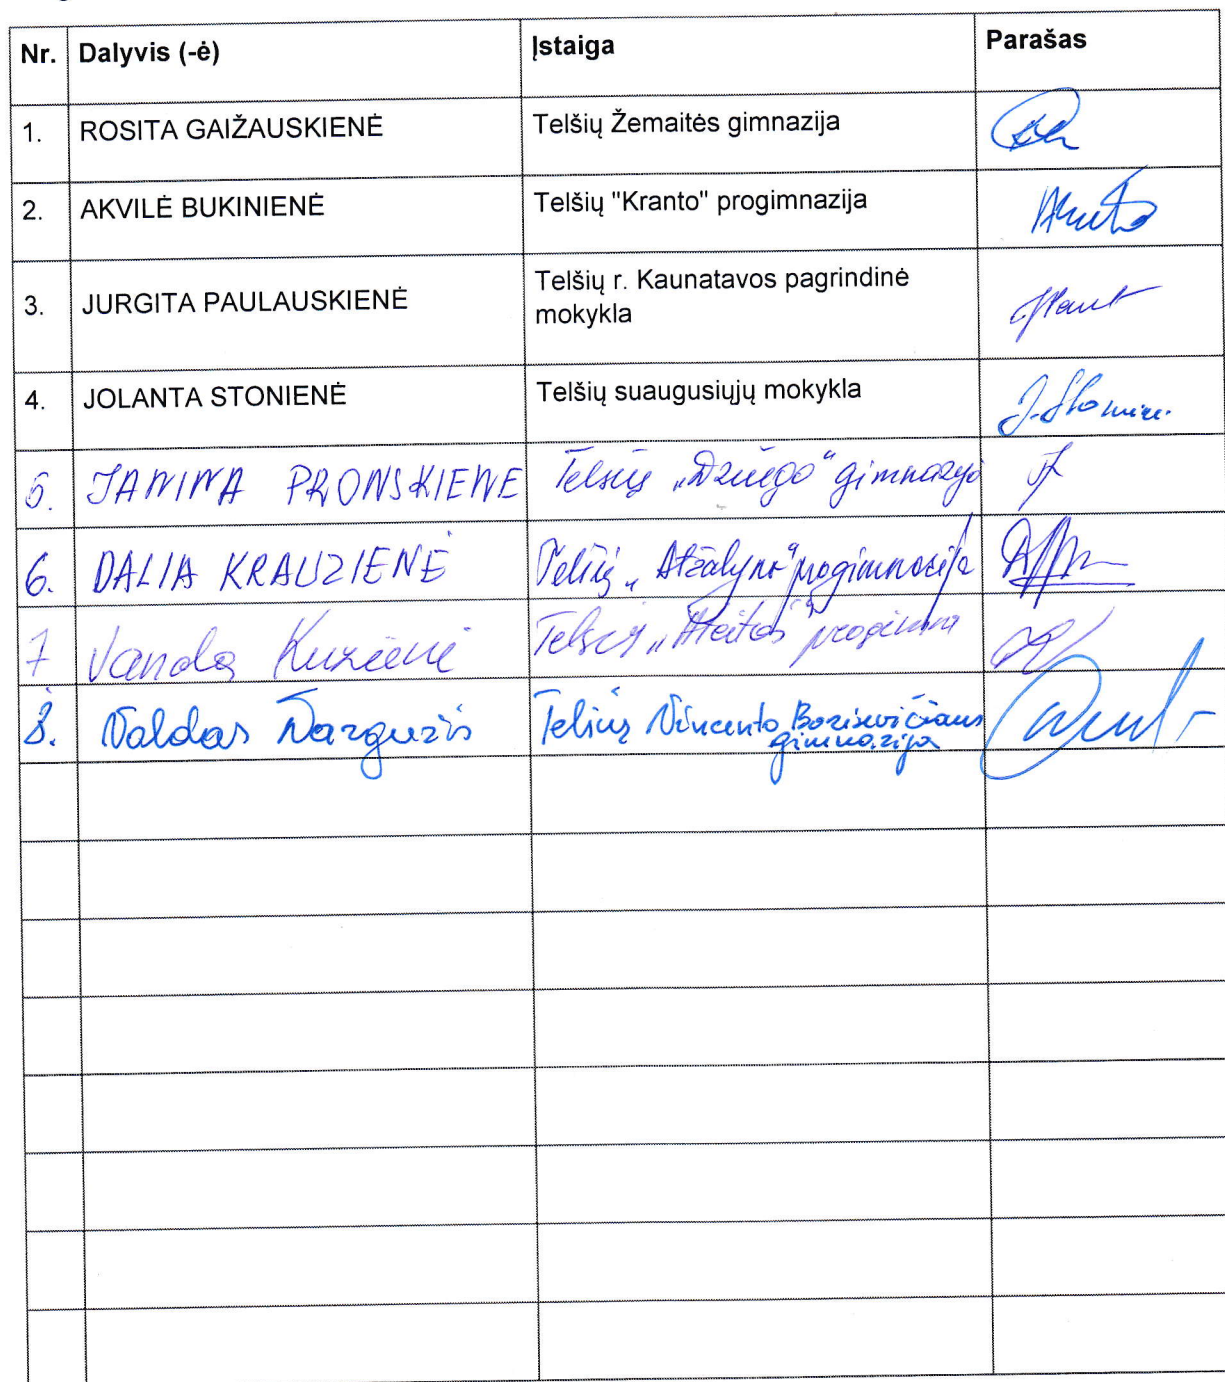 Nr. Dalyvis (-ė) Įstaiga Parašas
1. ROSITA GAIŽAUSKIENĖ Telšių Žemaitės gimnazija
2. AKVILĖ BUKINIENĖ Telšių "Kranto" progimnazija
3. JURGITA PAULAUSKIENĖ Telšių r. Kaunatavos pagrindinė
mokykla
4. JOLANTA STONIENĖ Telšių suaugusiųjų mokykla
5. JANINA PRONSKIENE Telšių „Džiugo" gimnazija
6. DALIA KRAUZIENĖ Telšių „Atžalyno" progimnazija
7 Vanda Kuzienė Telšių „Ateities" progimna
8. Valdas Telšių Vincento Borisevičiaus
gimnazija